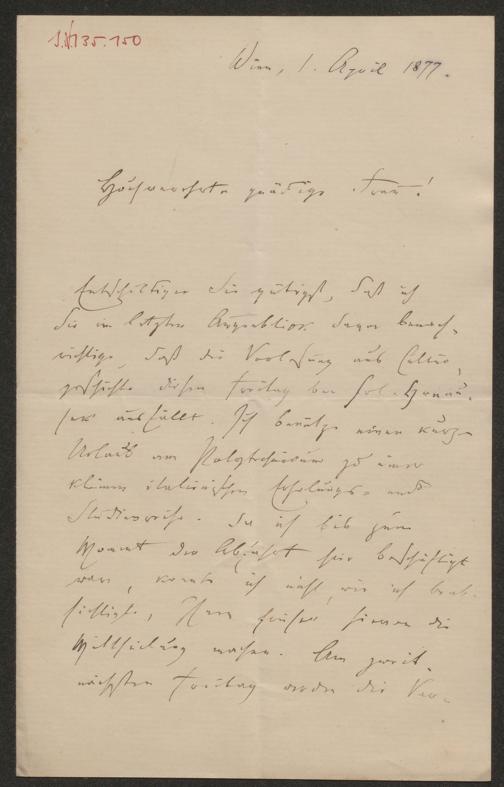 J.N. 135.150
Wien, 1. April 1877.
Hochverehrte gnädige Frau!
Entschuldigen Sie gütigst, daß ich
Sie im letzten Augenblick davon benach-
richtige, daß die Vorlesung aus Cultur-
geschichte diesen Freitag bei
ausfällt. Ich benütze einen kurzen
Urlaub am Polytechnicum zu einer
kleinen italienischen Erholungs- und
Studienreise. Da ich bis zum
Moment der Abfahrt sehr beschäftigt
war, konnte ich nicht, wie ich beab-
sichtigte, Ihnen früher hievon die
Mittheilung machen. Am zweit-
nächsten Freitag werden die Vor-